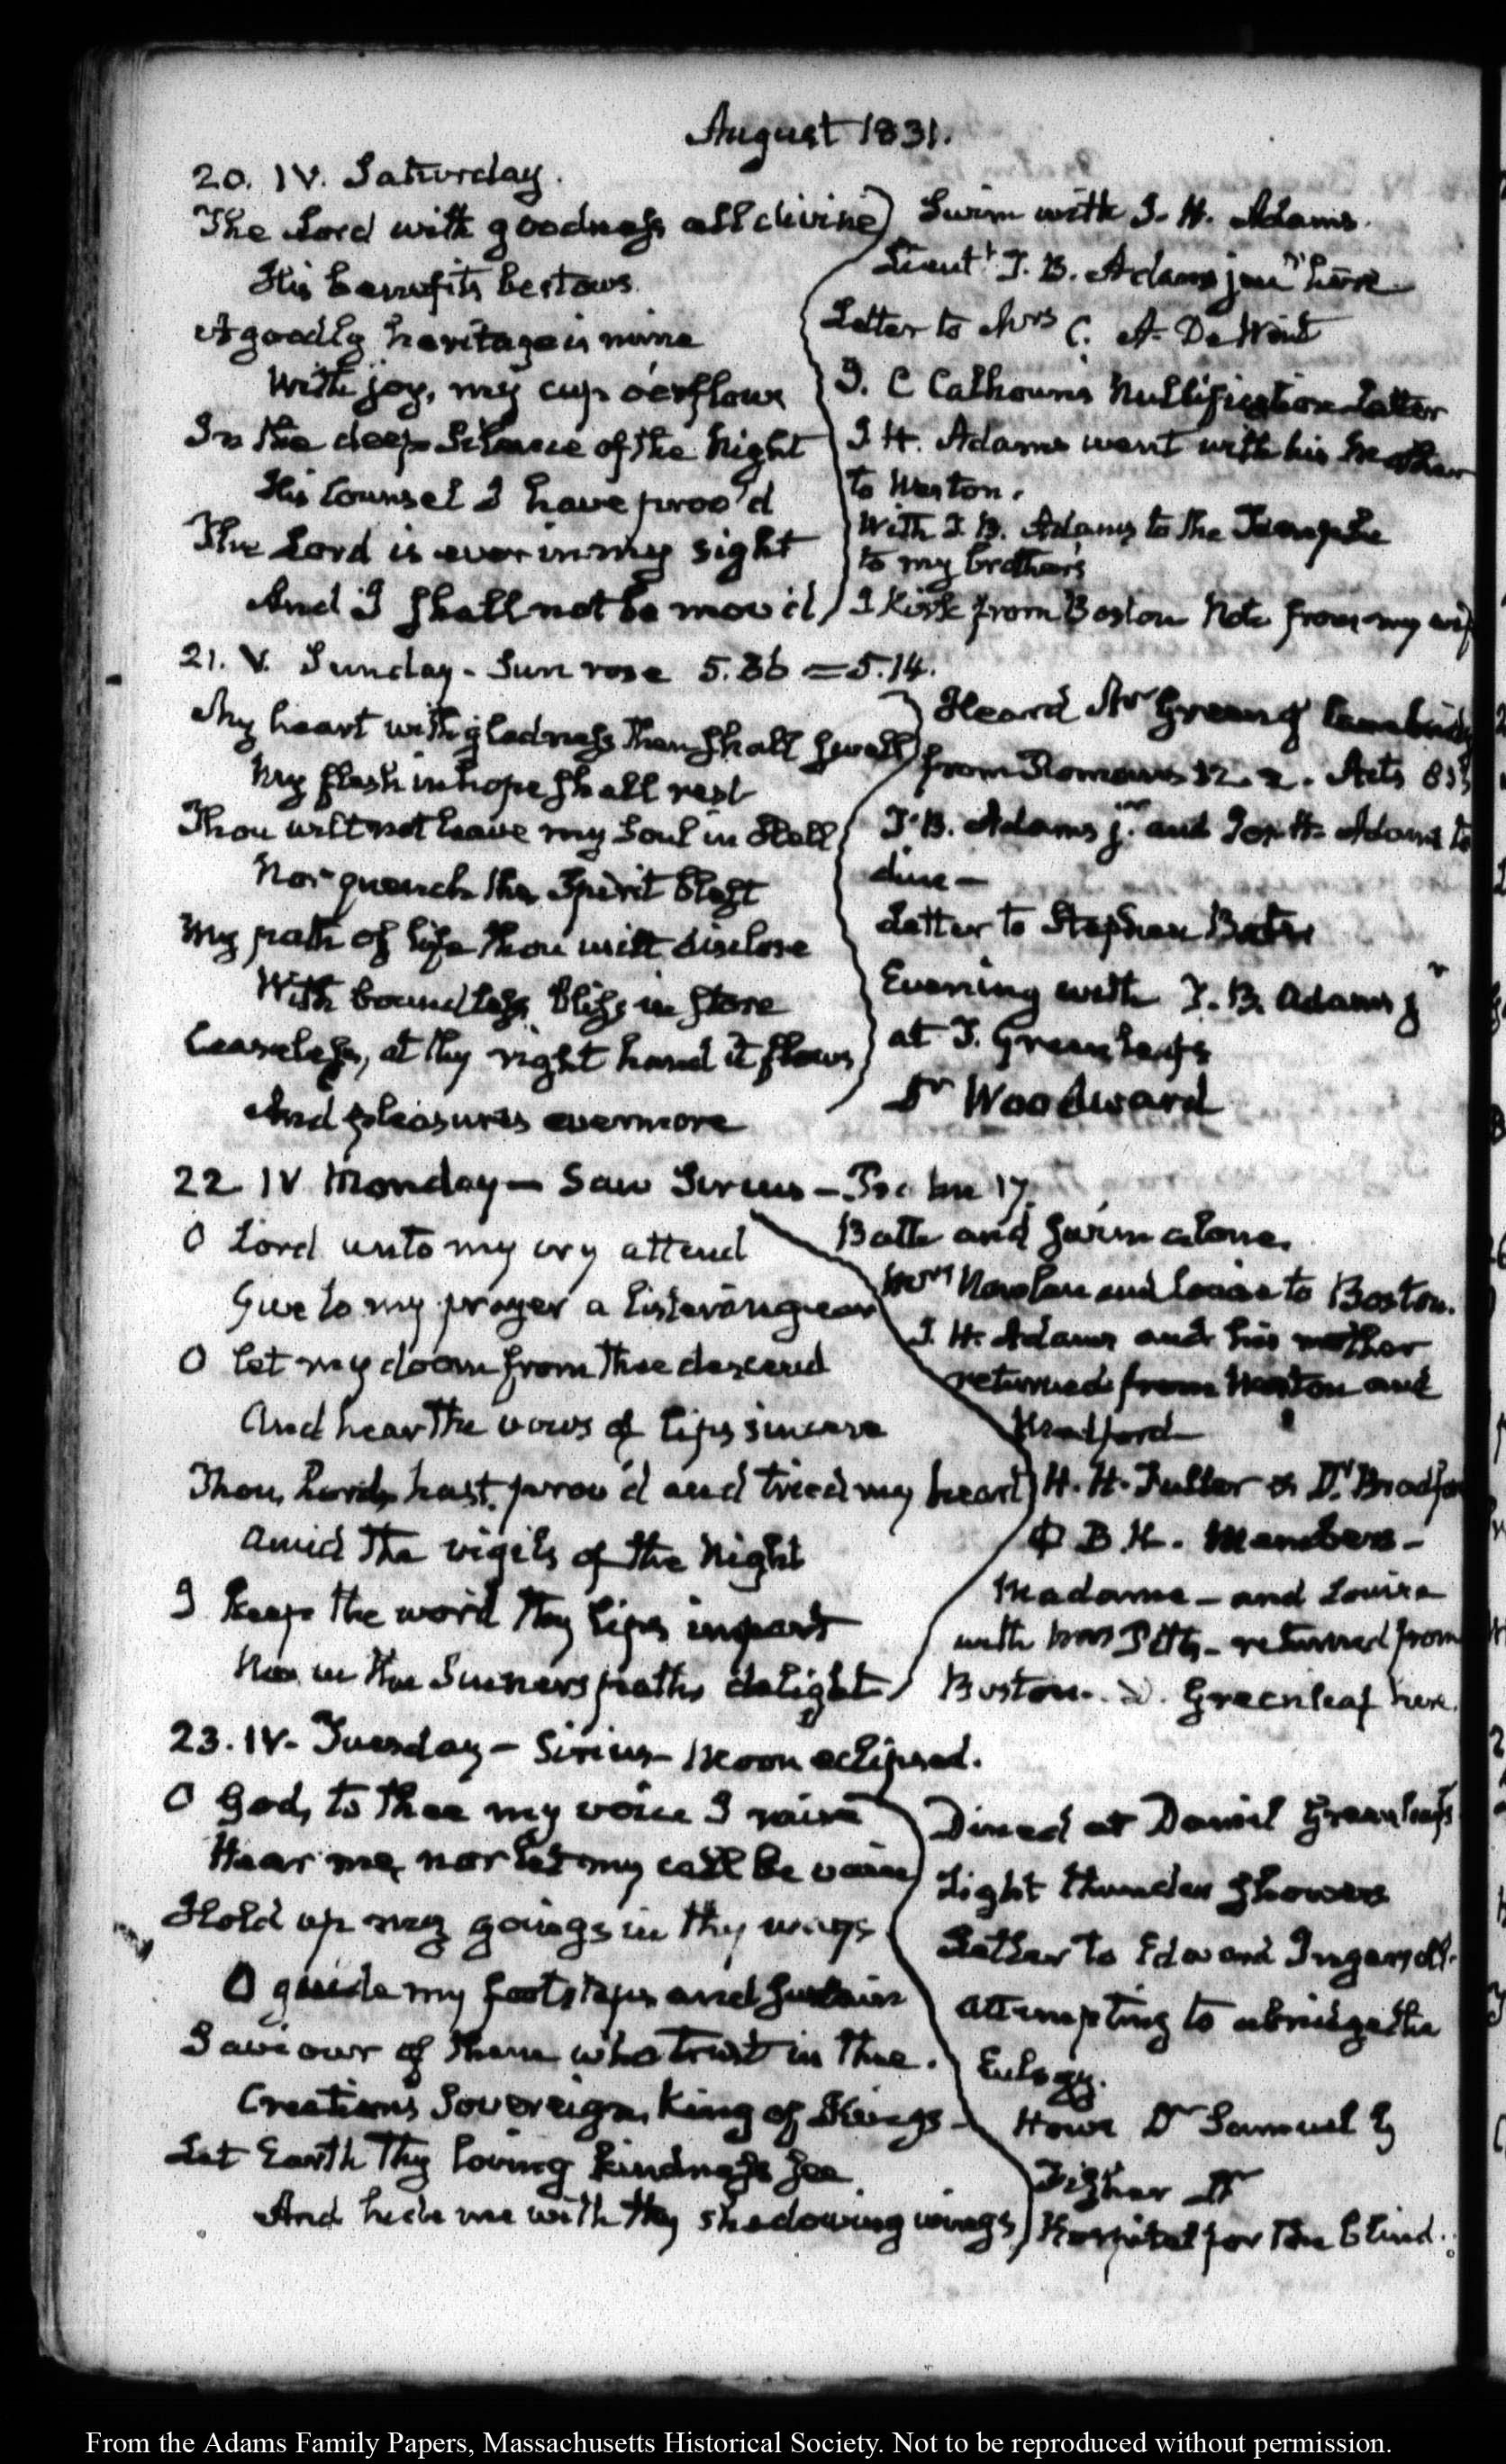 August 1831.
20. IV. Saturday.
The Lord with goodness all divine
His benefits bestows.
A goodly heritage is mine
With joy, my cup o'erflows
In the deep Silence of the Night
His Counsel I have prov'd
The Lord is ever in my sight
And I shall not be mov'd
Swim with I. H. Adams.
Lieutt. T. B. Adams junr here
Letter to Mrs C. A. De Wint
J. C Calhoun's Nullification Letter
I H. Adams went with his Mother
to Weston.
With T. B. Adams to the Temple
to my brothers
I Kirk from Boston Note from my wif
21. V. Sunday - Sun rose 5.36 = 5.14.
My heart with gladness then shall swell
My flesh in hope shall rest
Thou wilt not leave my Soul in Hell
Nor quench the Spirit blest
My path of life thou wilt disclose
With boundless bliss in store
Ceaseless, at thy right hand it flows
And pleasures evermore
Heard Mr Green of
from Romans 12. 2. Acts
T. B. Adams jr and Jos. H. Adams to
dine —
Letter to Stephen Bates
Evening with T. B. Adams jr
at T. Greenleafs
Dr Woodward
22 IV Monday — Saw Sirius — Psalm 17.
O Lord unto my cry attend
Give to my prayer a listening ear
O let my doom from thee descend
And hear the vows of lips sincere
Thou, Lord, hast prov'd and tried my heart
Amid the vigils of the Night
I keep the word thy lips impart
Nor in the Sinners paths delight
Bath and Swim alone.
Mrs Nowlan and Louisa to Boston.
I. H. Adams and his mother
returned from Weston and
Medford
H. H. Fuller & Dr. Bradfor
Φ B K. Members —
Madame — and Louisa
with — returned from
Boston. D. Greenleaf here.
23. IV. Tuesday — Sirius — Moon eclipsed.
O God, to thee my voice I raise
Hear me, nor let my call be vain
Hold up my goings in thy ways
O guide my footsteps and sustain
Saviour of them who trust in thee.
Creation's Sovereign, King of Kings —
Let Earth thy loving kindness see
And hide me with thy shadowing wings
Dined at Daniel Greenleafs
Light thunder Showers
Letter to Edward Ingersoll.
Attempting to abridge the
Eulogy.
Howe Dr Samuel G
Fisher Dr
Hospital for the Blind.
From the Adams Family Papers, Massachusetts Historical Society. Not to be reproduced without permission.